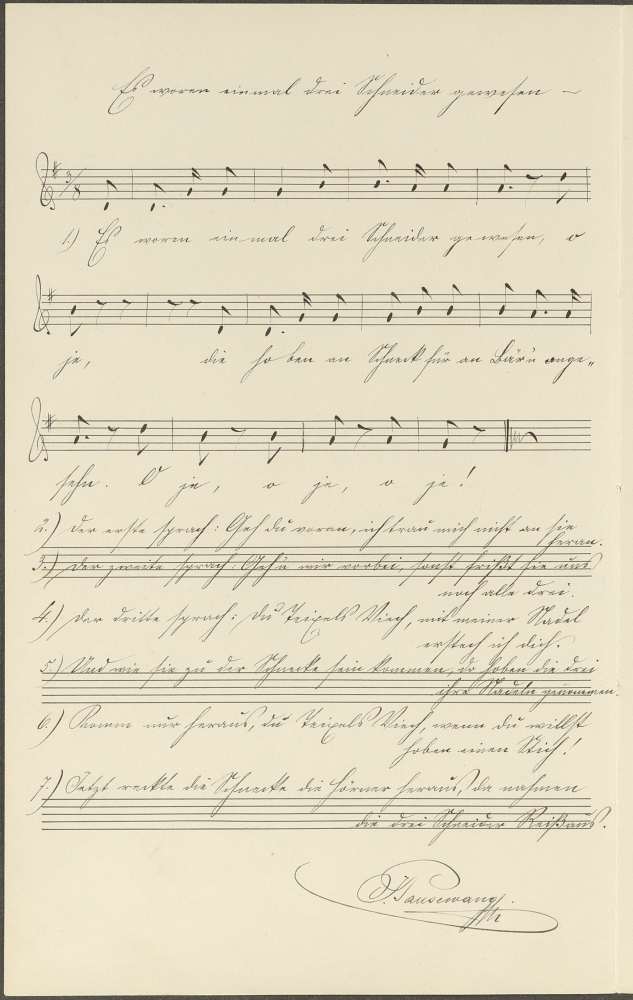 Es woren einmal drei Schneider gewesen –
3/8
1.) Es woren ein-mal drei Schneider gewesen, o
je, die ho ben an Schneck für an Bär'n ange„
sehn. O je, o je, o je!
2.) Der erste sprach: Geh du voran, ich trau mich nicht an sie
heran.
3.) Der zweite sprach: Geh'n wir vorbei, sonst frißt sie uns
noch alle drei.
4.) Der dritte sprach: Du Teixels Viech, mit meiner Nadel
erstech ich dich.
5.) Und wie sie zu der Schnecke sein kommen, do hoben die drei
ihre Nadeln genommen.
6.) Komm nur heraus, du Teixels Viech, wenn du willst
hoben einen Stich!
7.) Jetzt reckte die Schnecke die Hörner heraus, da nahmen
die drei Schneider Reißaus.
Pausewang